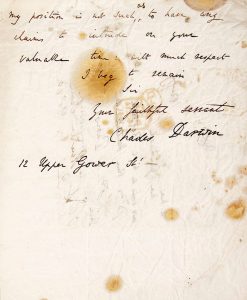 as
my position is not such, to have any
claims to intrude on your
valuable time. With much respect
I beg to remain
Sir
Your faithful servant
Charles Darwin
12 Upper Gower St —